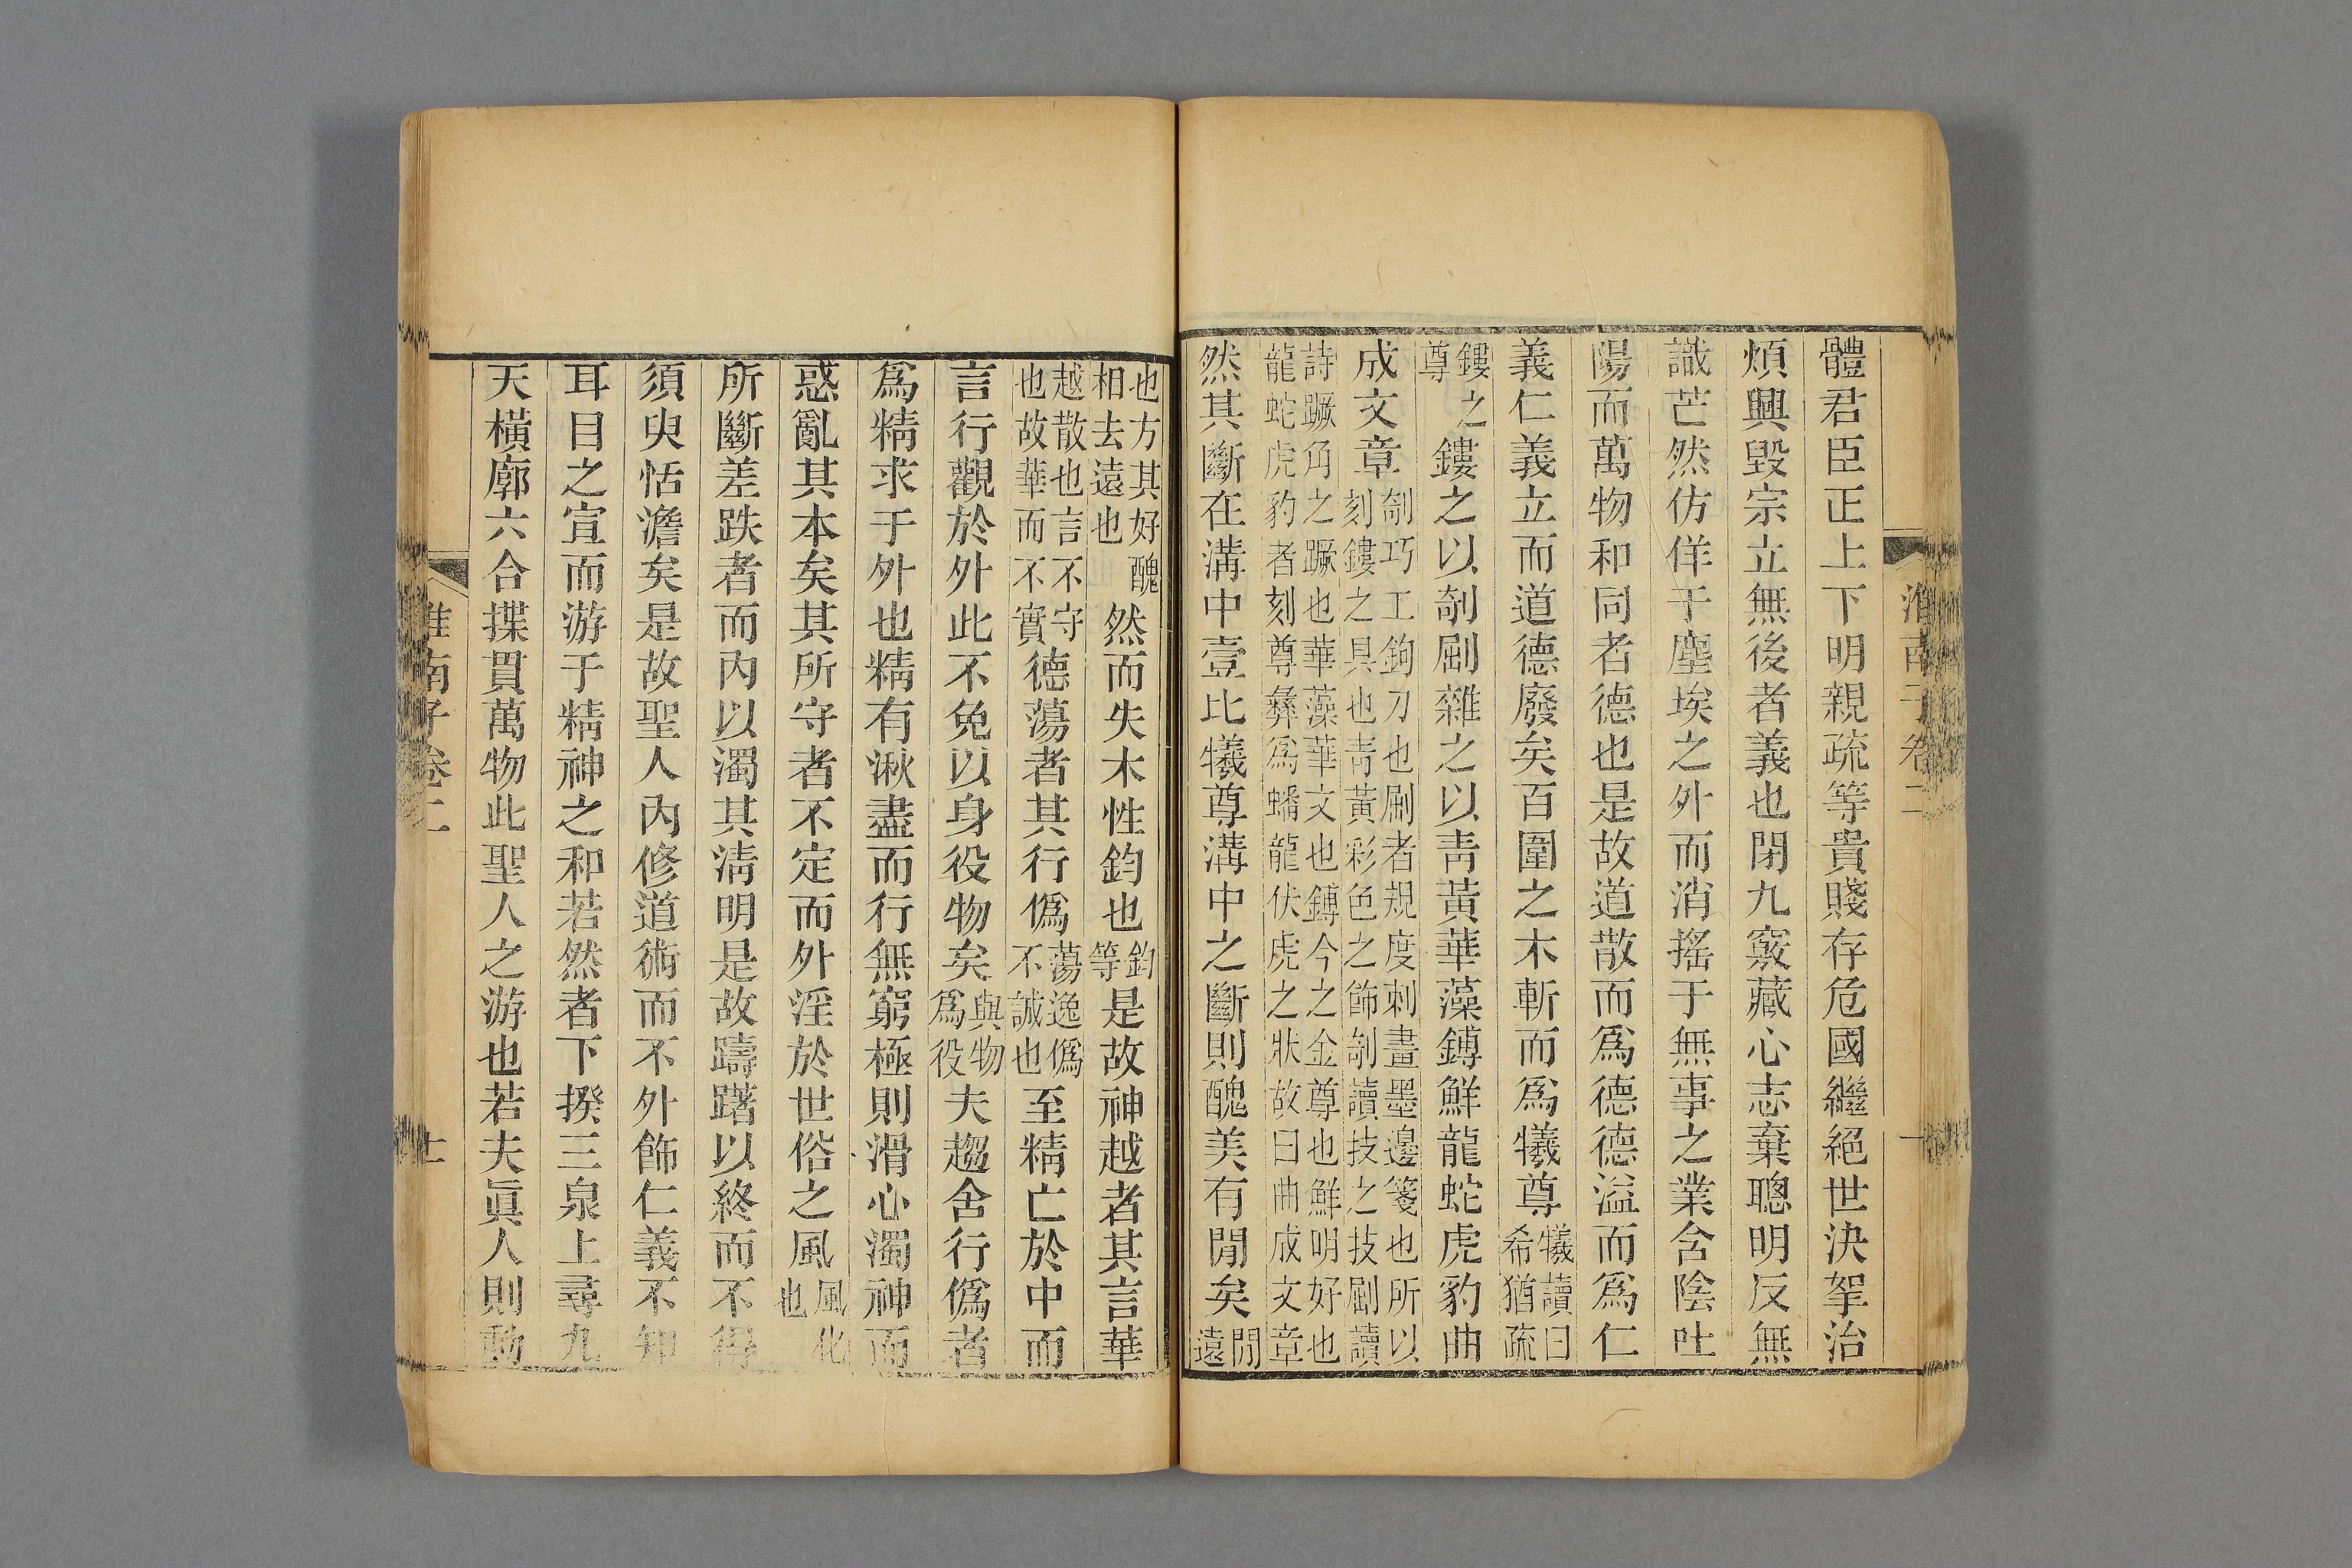 淮南子卷二
十
體君臣正上下明親疏等貴賤存危國繼絕世決挐治
煩興毀宗立無後者義也閉九竅藏心志棄聰明反無
識芒然仿佯于塵埃之外而消搖于無事之業含陰吐
陽而萬物和同者德也是故道散而爲德德溢而爲仁
義仁義立而道德廢矣百圍之木斬而爲犧尊犧讀曰希猶疏
鏤之尊鏤之以剞㔉雜之以青黃華藻鎛鮮龍蛇虎豹曲
成文章剞巧工鉤刀也㔉者規度刺畫墨邊箋也所以刻鏤之具也青黃彩色之飾剞讀技之技㔉讀
詩蹶角之蹶也華藻華文也鎛今之金尊也鮮明好也龍蛇虎豹者刻尊彝爲蟠龍伏虎之狀故曰曲成文章
然其斷在溝中壹比犧尊溝中之斷則醜美有閒矣閒遠
也方其好醜相去遠也然而失木性鈞也鈞等是故神越者其言華
越散也言不守也故華而不實德蕩者其行僞蕩逸僞不誠也至精亡於中而
言行觀於外此不免以身役物矣與物爲役夫趨舍行僞者
爲精求于外也精有湫盡而行無窮極則滑心濁神而
惑亂其本矣其所守者不定而外淫於世俗之風風化也
所斷差跌者而內以濁其淸明是故躊躇以終而不得
須臾恬澹矣是故聖人內修道術而不外飾仁義不知
耳目之宣而游于精神之和若然者下揆三泉上尋九
天橫廓六合揲貫萬物此聖人之游也若夫眞人則動
淮南子卷二
十一